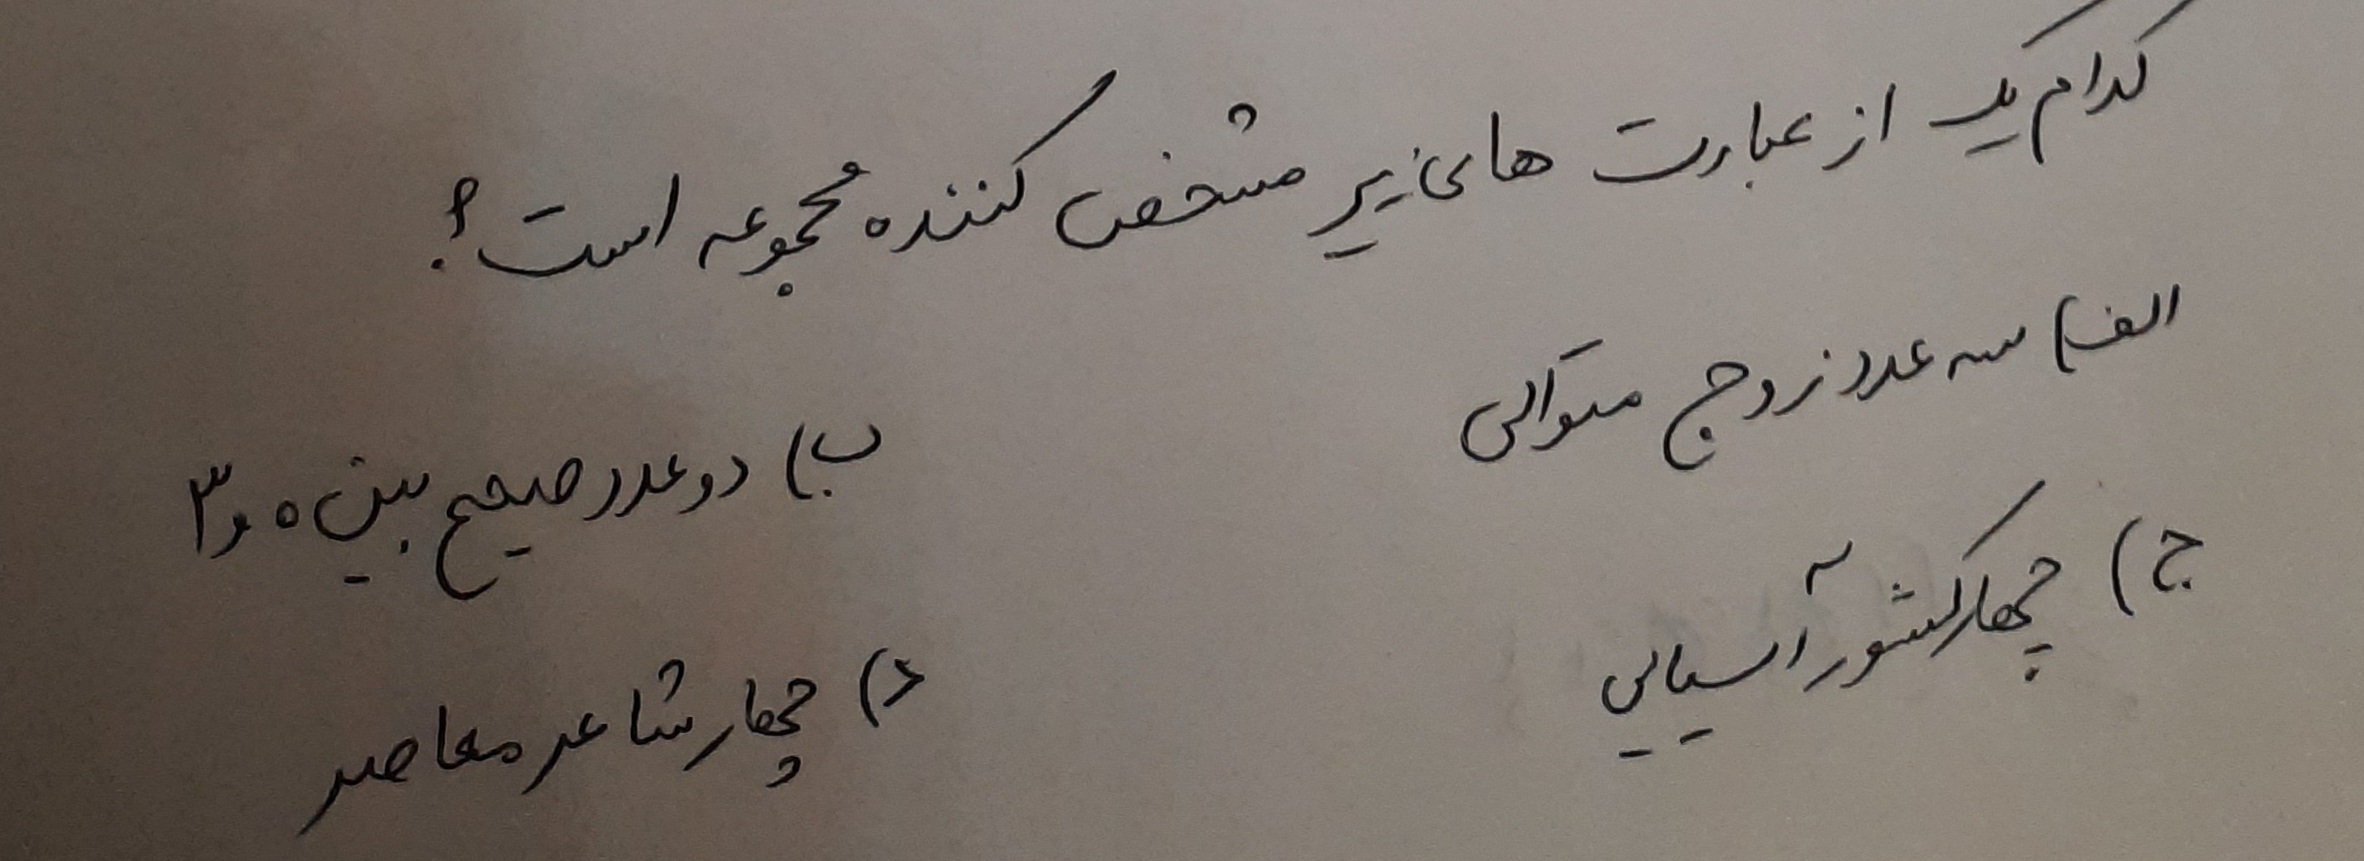 کدام یک از عبارت های زیر مشخص کننده مجموعه است؟
الف) سه عدد زوج متوالی
ب) دو عدد صحیح بین ۰ و ۳
ج) چهار کشور آسیایی
د) چهار شاعر معاصر